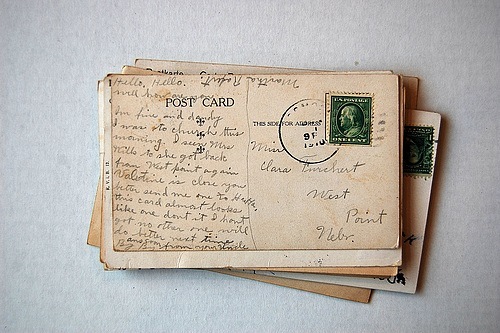 Postkarte
Hello, Hello.
well how are you
POST CARD
Im fine and dandy
I was to church this
morning. I seen Mrs
Wells to she got back
from West point again
Valentine is close you
better send me one to Ha ha,
this card almost looks
like one dont it I hant
got no other one will
do better next time
THIS SIDE FOR ADDRESS
U.S. POSTAGE
ONE CENT
9 P
1910
Miss
Clara
West
Point
Nebr.